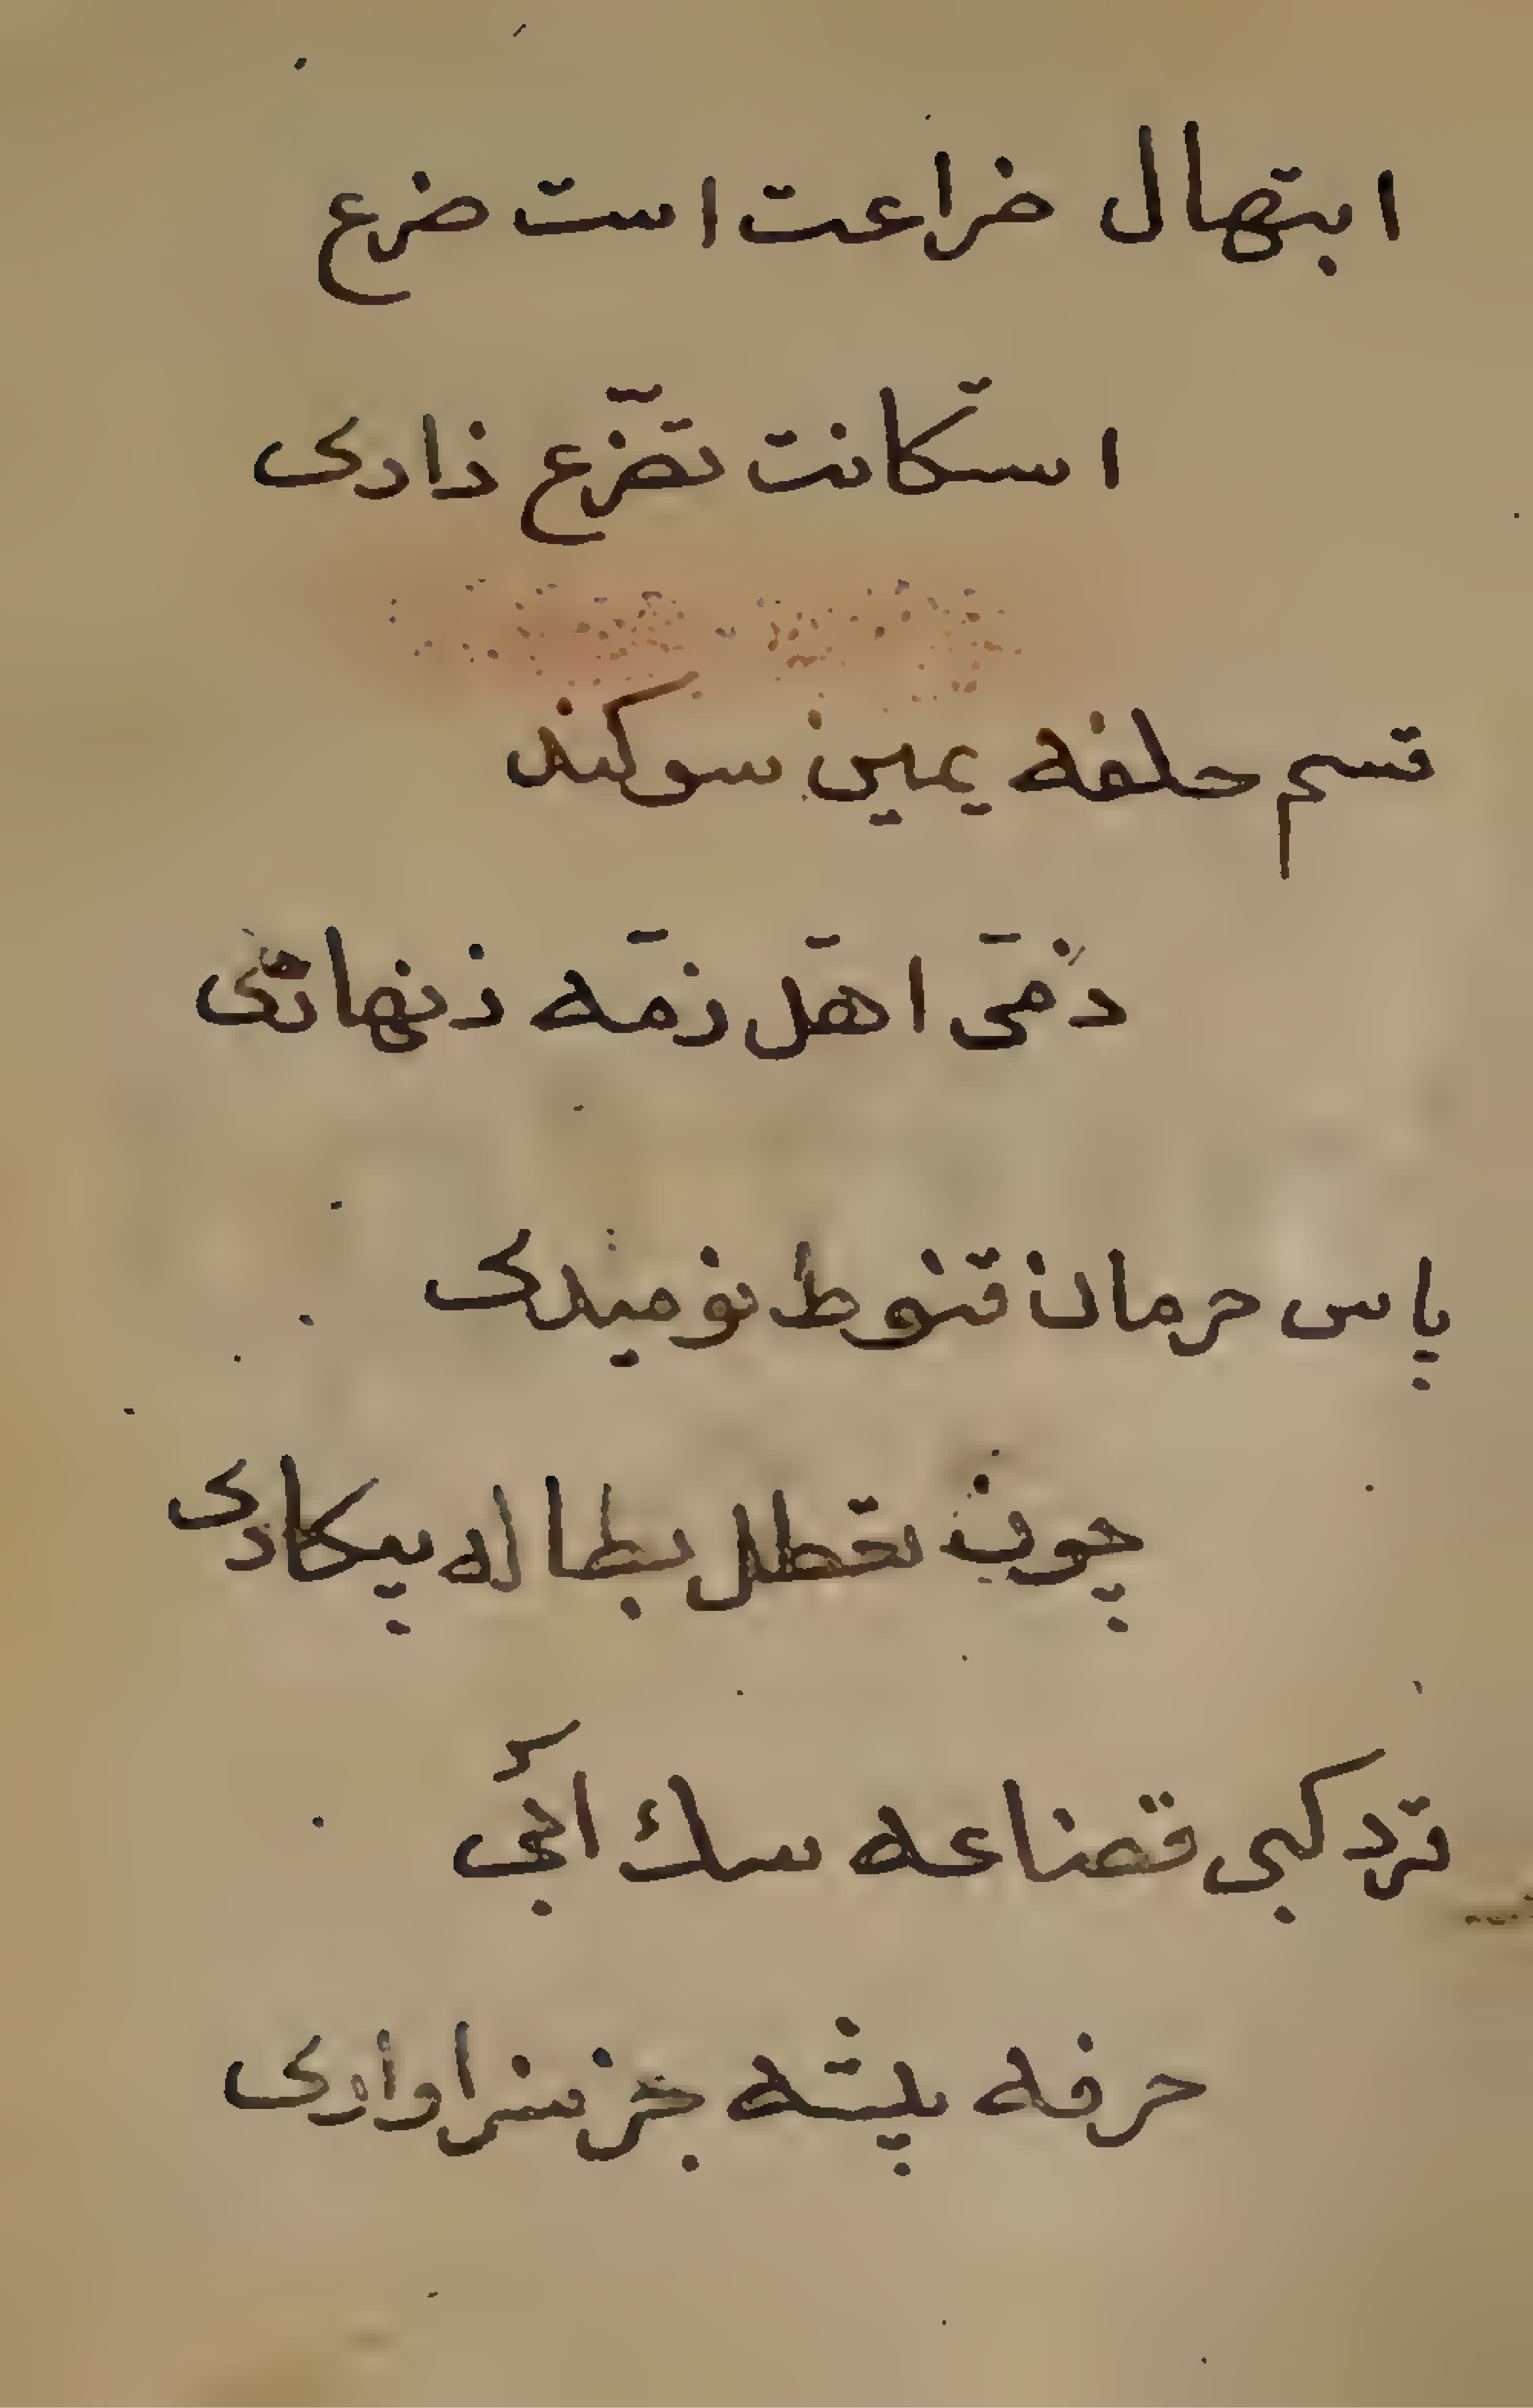 ابتهال ضراعت است ضرع
استکانت تضرّع زاری
قسم حلفه یمین سوکند
ذمّی اهل ذمّه زنهاتی
یاس حرمان قنوط نومیدی
چون تعطل بطاله بیکاری
ترد کبی قضاعه سك
حرفه پیشه جز سزاواری